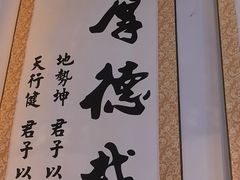 厚德載
地勢坤 君子以
天行健 君子以